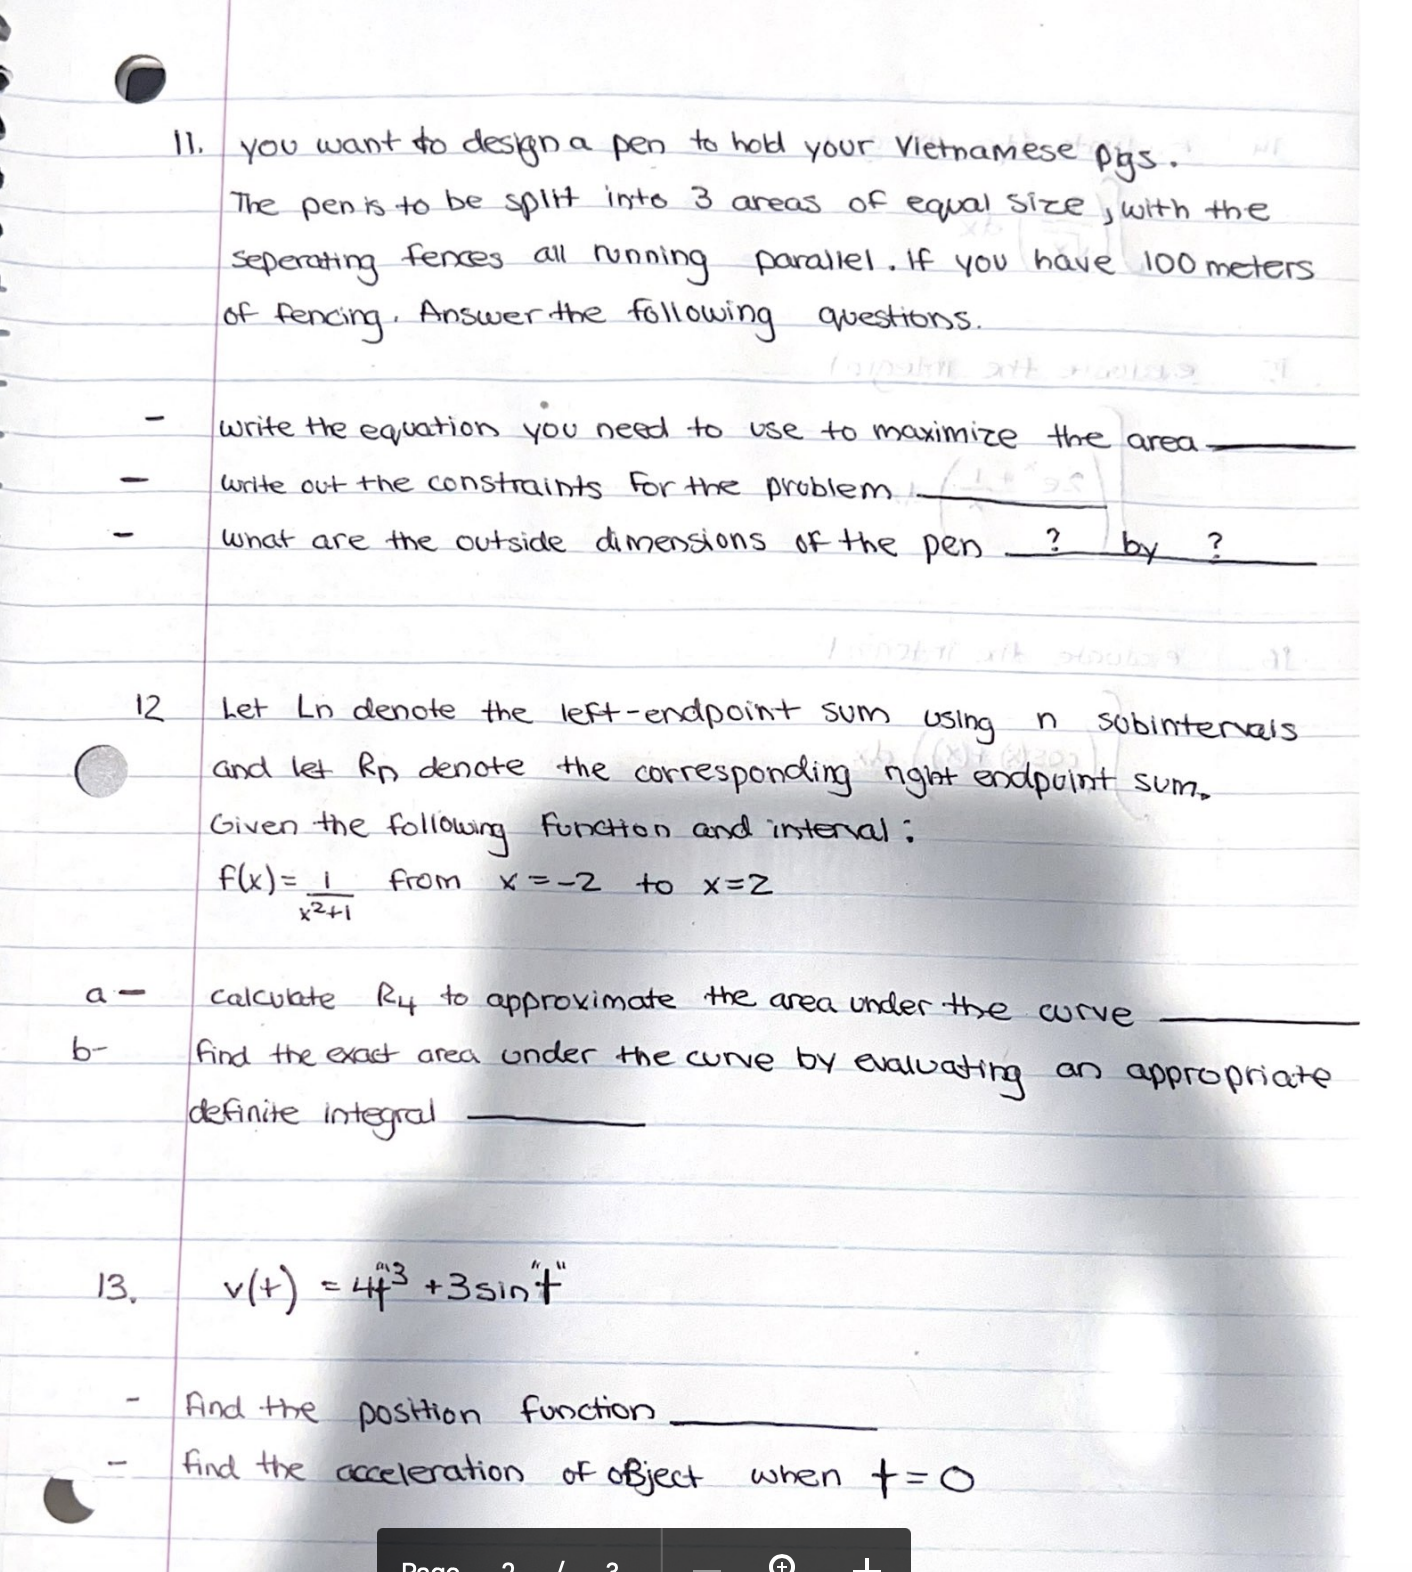 11. you want to design a pen to hold your Vietnamese pigs.
The pen is to be split into 3 areas of equal size, with the
seperating fences all running parallel. If you have 100 meters
of fencing. Answer the following questions.
- write the equation you need to use to maximize the area ______
- write out the constraints for the problem ______
- what are the outside dimensions of the pen ? by ?
12 Let Ln denote the left-endpoint sum using n subintervals
and let Rn denote the corresponding right endpoint sum.
Given the following function and interval:
f(x) = 1/(x²+1) from x = -2 to x = 2
a - calculate R4 to approximate the area under the curve ______
b- find the exact area under the curve by evaluating an appropriate
definite integral ______
13. v(t) = 4"t"³ + 3 sin "t"
- find the position function ______
- find the acceleration of object when t = 0
Page 2 / 3 - +